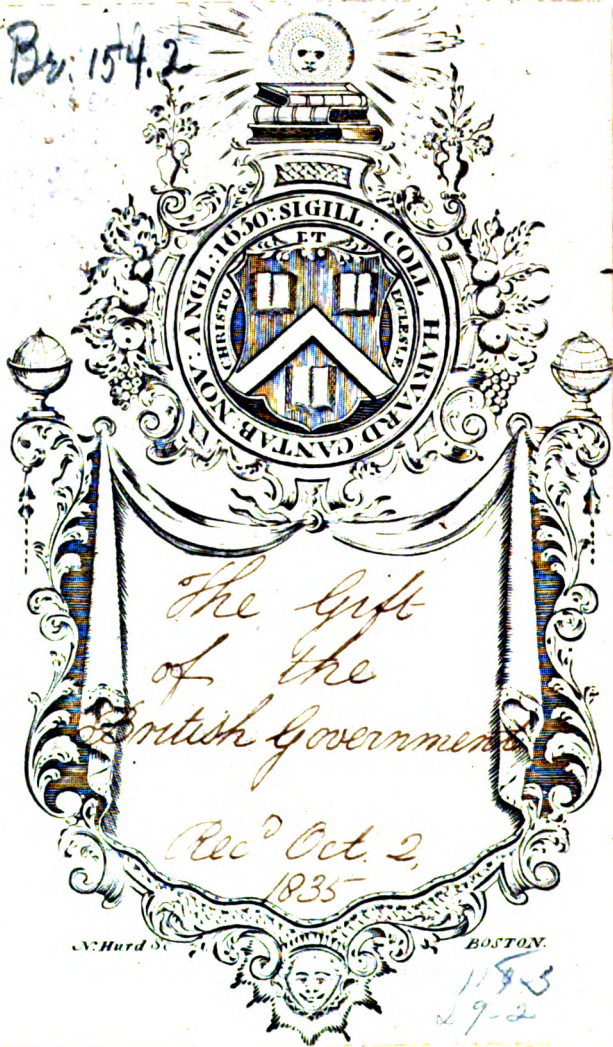 Br. 154.2
SIGILL : COLL HARVARD : CANTAB : NOV : ANGL : 1650 :
ET
CHRISTO
ECCLESIÆ
The Gift
of the
British Government
Rec^D Oct. 2,
1835
N. Hurd Sc
BOSTON.
29-2